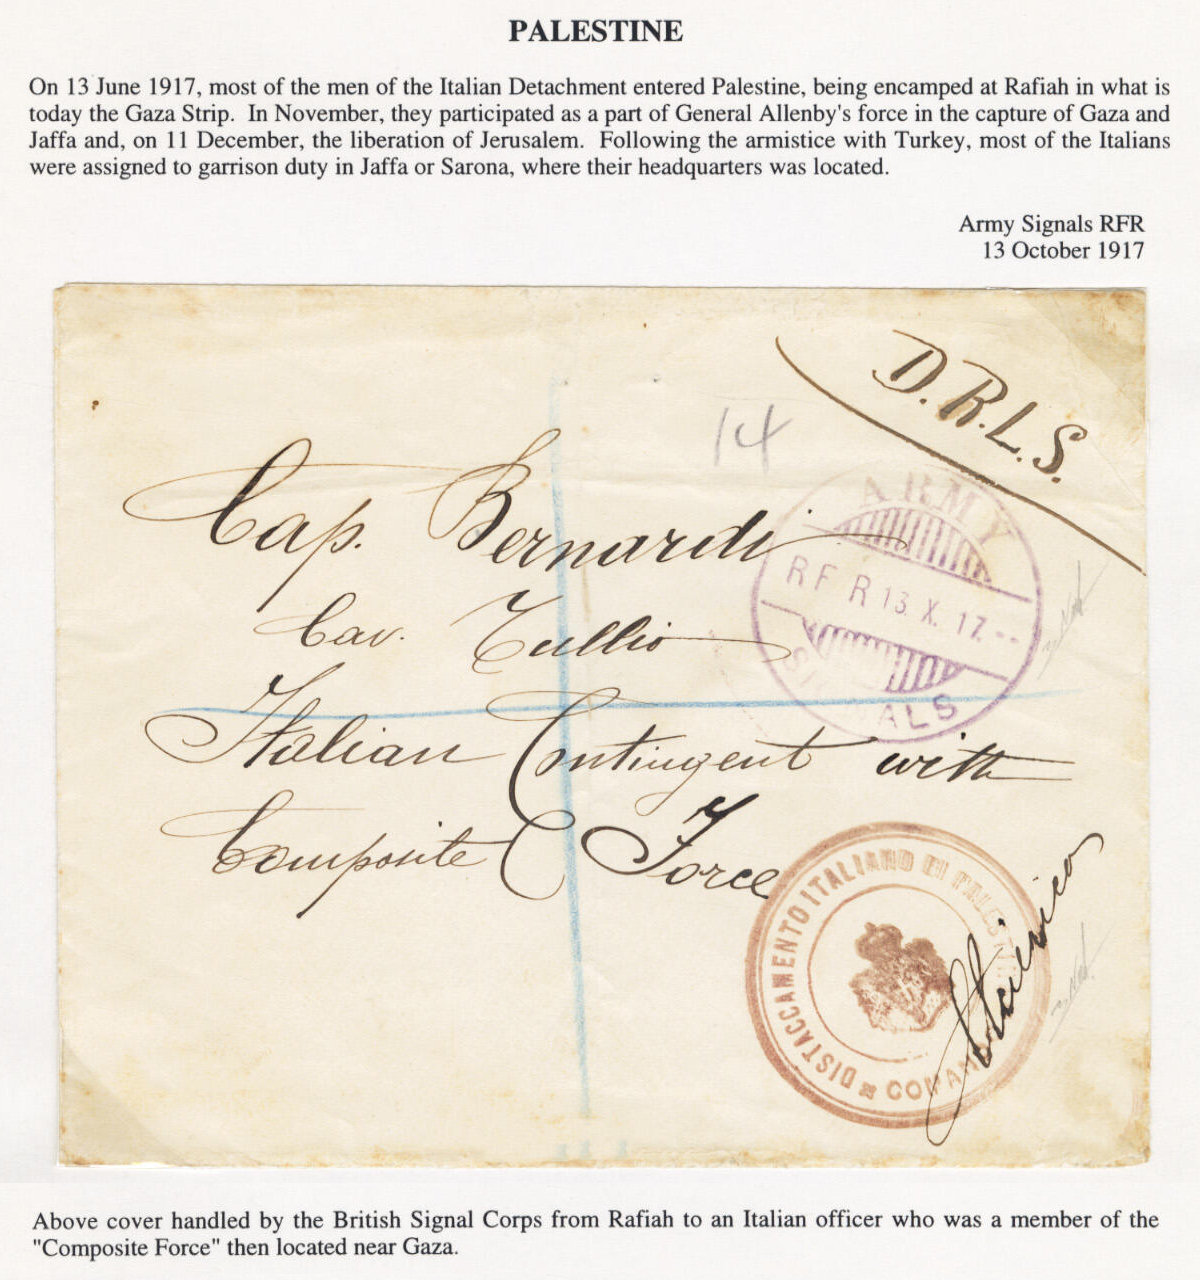 PALESTINE
On 13 June 1917, most of the men of the Italian Detachment entered Palestine, being encamped at Rafiah in what is
today the Gaza Strip. In November, they participated as a part of General Allenby's force in the capture of Gaza and
Jaffa and, on 11 December, the liberation of Jerusalem. Following the armistice with Turkey, most of the Italians
were assigned to garrison duty in Jaffa or Sarona, where their headquarters was located.
Army Signals RFR
13 October 1917
D.R.L.S.
14
ARMY
RFR 13. X. 17.--
SIGNALS
Cap. Bernardi
Cav. Tullio
Italian Contingent with
Composite Force
DISTACCAMENTO ITALIANO DI PALESTINA
COMANDO
Above cover handled by the British Signal Corps from Rafiah to an Italian officer who was a member of the
"Composite Force" then located near Gaza.